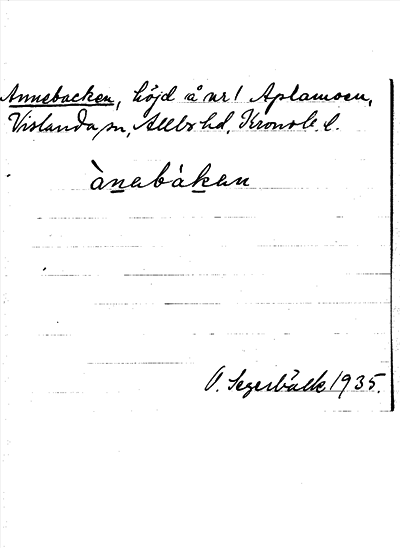 Annebacken, höjd å nr 1 Aplamoen,
Vislanda sn, Allbo hd, Kronob. l.
ànabàkan
O. Segerbäck 1935.